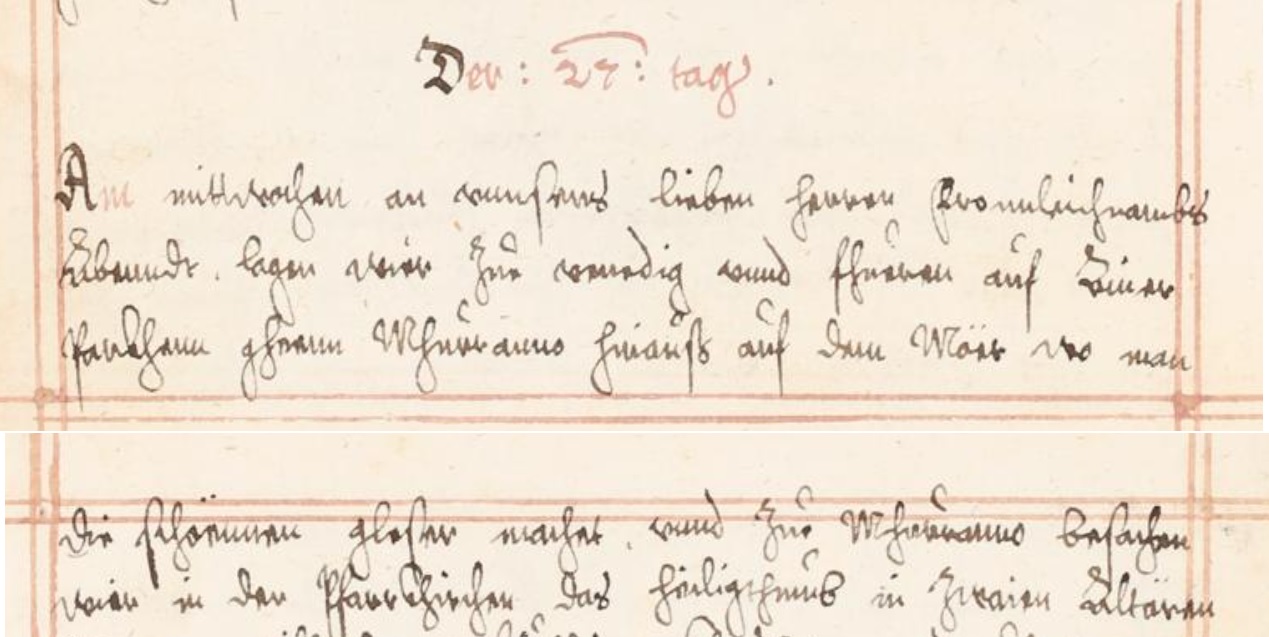 Der: 27: tag.
Am mittwochen an vnnsers lieben herren Fronnleichnambs
Abenndt. lagen wier zue venedig vnnd fhueren auf Einer
Parckhenn gheenn Mhurranno hinauss auf dem Möer wo man
die schöennen gleser machet, vnnd zue Mhurranno besachen
wier in der Pfarrkhirchen das heiligthumb in zwaien Altären